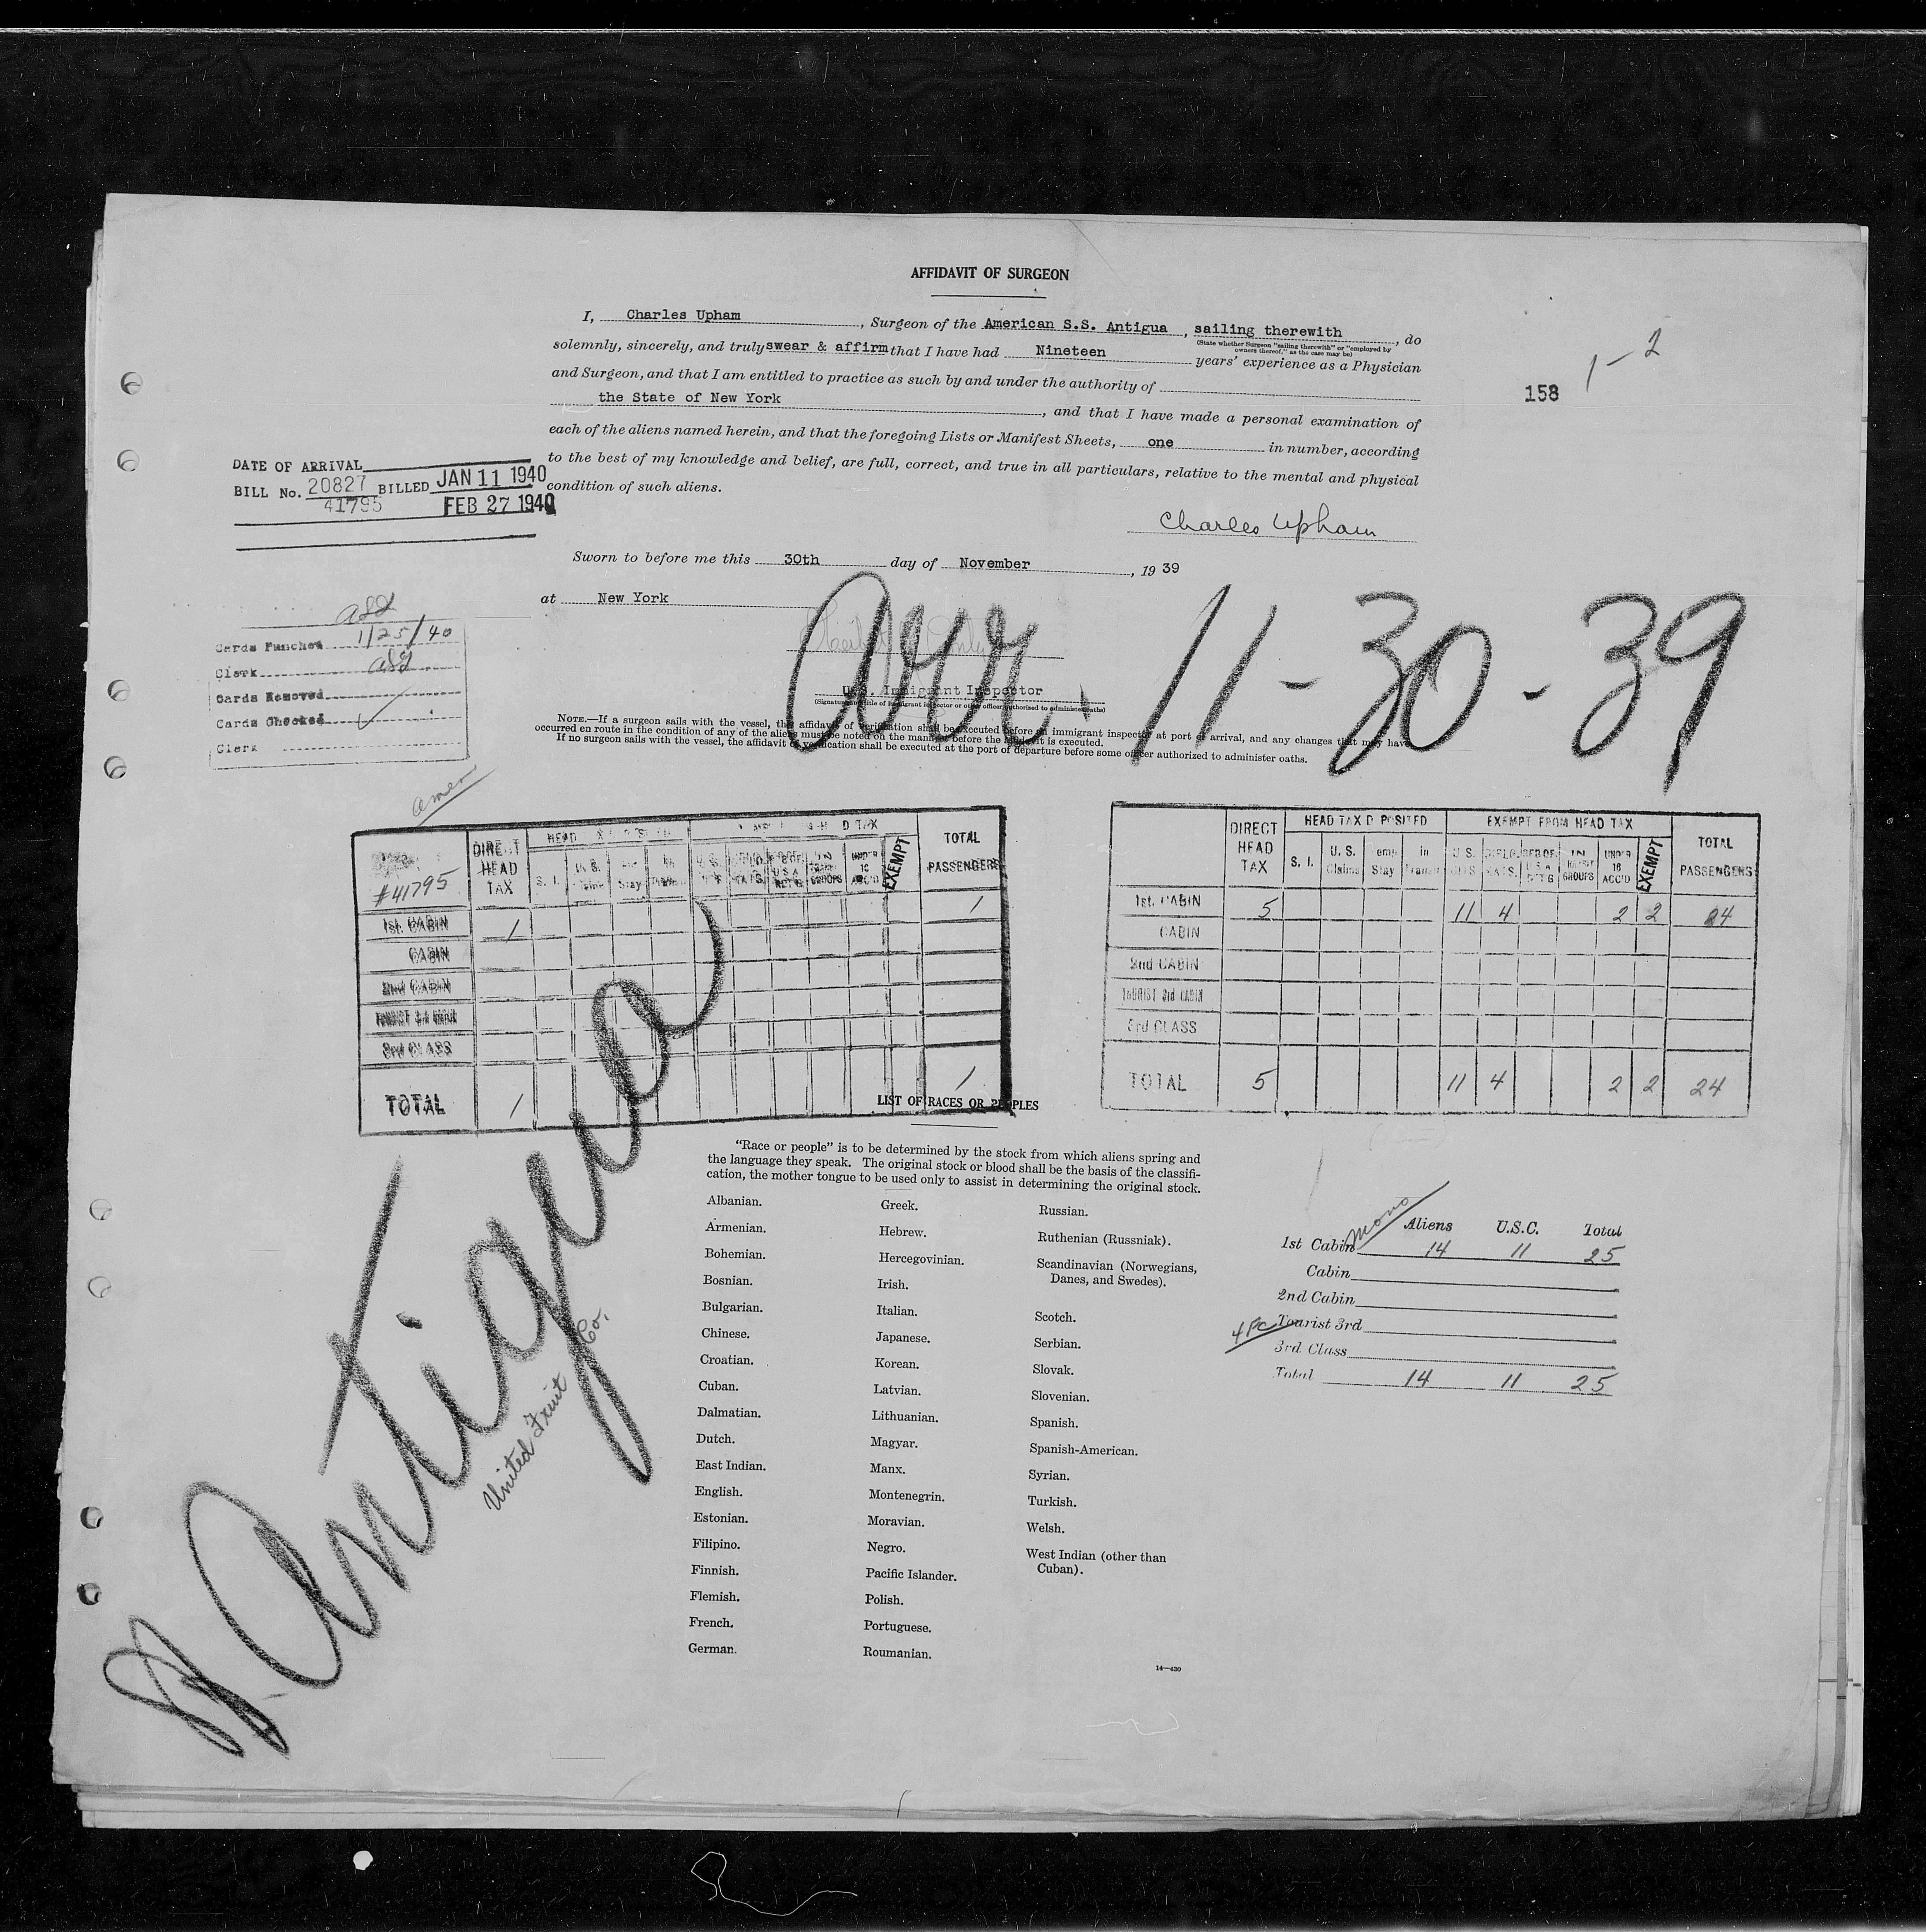 AFFIDAVIT OF SURGEON
I, Charles Upham, Surgeon of the American S.S. Antigua, sailing therewith, do
(State whether Surgeon "sailing therewith" or "employed by
owners thereof," as the case may be)
solemnly, sincerely, and truly swear & affirm that I have had Nineteen years' experience as a Physician
and Surgeon, and that I am entitled to practice as such by and under the authority of
the State of New York, and that I have made a personal examination of
each of the aliens named herein, and that the foregoing Lists or Manifest Sheets, one in number, according
to the best of my knowledge and belief, are full, correct, and true in all particulars, relative to the mental and physical
condition of such aliens.
158
1-2
DATE OF ARRIVAL
BILL No. 20827 BILLED JAN 11 1940
41795 FEB 27 1940
Charles Upham
Sworn to before me this 30th day of November, 1939
at New York
U.S. Immigrant Inspector
(Signature and title of immigrant inspector or other officer authorized to administer oaths)
Arr. 11-30-39
Cards Punched 1/25/40
Clerk
Cards Removed
Cards Checked ✓
Clerk
NOTE.—If a surgeon sails with the vessel, the affidavit of verification shall be executed before an immigrant inspector at port of arrival, and any changes that may have
occurred en route in the condition of any of the aliens must be noted on the manifest before the affidavit is executed.
If no surgeon sails with the vessel, the affidavit of verification shall be executed at the port of departure before some officer authorized to administer oaths.
#41795
DIRECT HEAD TAX
S. I.
EXEMPT
TOTAL PASSENGERS
1st. CABIN 1 1
CABIN
2nd CABIN
TOURIST 3rd CABIN
3rd CLASS
TOTAL 1 1
DIRECT HEAD TAX
HEAD TAX DEPOSITED
EXEMPT FROM HEAD TAX
TOTAL PASSENGERS
S. I.
U. S. Claims
Temp Stay
in Transit
U. S. CITS.
UNDER 16 ACC'D
EXEMPT
1st. CABIN 5 11 4 2 2 24
CABIN
2nd CABIN
TOURIST 3rd CABIN
3rd CLASS
TOTAL 5 11 4 2 2 24
LIST OF RACES OR PEOPLES
"Race or people" is to be determined by the stock from which aliens spring and
the language they speak. The original stock or blood shall be the basis of the classifi-
cation, the mother tongue to be used only to assist in determining the original stock.
Albanian.
Armenian.
Bohemian.
Bosnian.
Bulgarian.
Chinese.
Croatian.
Cuban.
Dalmatian.
Dutch.
East Indian.
English.
Estonian.
Filipino.
Finnish.
Flemish.
French.
German.
Greek.
Hebrew.
Hercegovinian.
Irish.
Italian.
Japanese.
Korean.
Latvian.
Lithuanian.
Magyar.
Manx.
Montenegrin.
Moravian.
Negro.
Pacific Islander.
Polish.
Portuguese.
Roumanian.
Russian.
Ruthenian (Russniak).
Scandinavian (Norwegians,
Danes, and Swedes).
Scotch.
Serbian.
Slovak.
Slovenian.
Spanish.
Spanish-American.
Syrian.
Turkish.
Welsh.
West Indian (other than
Cuban).
14—430
Aliens U.S.C. Total
1st Cabin 14 11 25
Cabin
2nd Cabin
Tourist 3rd
3rd Class
Total 14 11 25
Antigua
United Fruit Co.